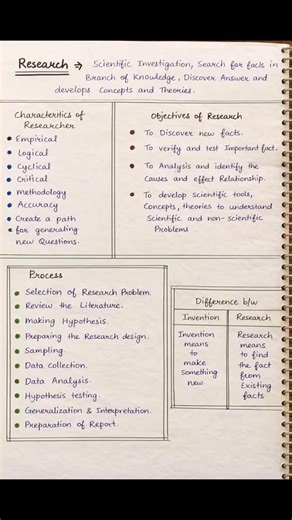 Research ⇒ Scientific Investigation, Search for facts in
Branch of Knowledge, Discover Answer and
develops Concepts and Theories.
Characteritics of
Researcher
Empirical
Logical
Cyclical
Critical
methodology
Accuracy
Create a path
for generating
new Questions.
Objectives of Research
To Discover new facts.
To verify and test Important fact.
To Analysis and identify the
Causes and effect Relationship.
To develop scientific tools,
Concepts, theories to understand
Scientific and non-scientific
Problems
Process
Selection of Research Problem.
Review the Literature.
making Hypothesis.
Preparing the Research design.
Sampling.
Data collection.
Data Analysis.
Hypothesis testing.
Generalization & Interpretation.
Preparation of Report
Difference b/w
Invention
Research
Invention
means
to
make
Something
new
Research
means
to find
the fact
from
Existing
facts